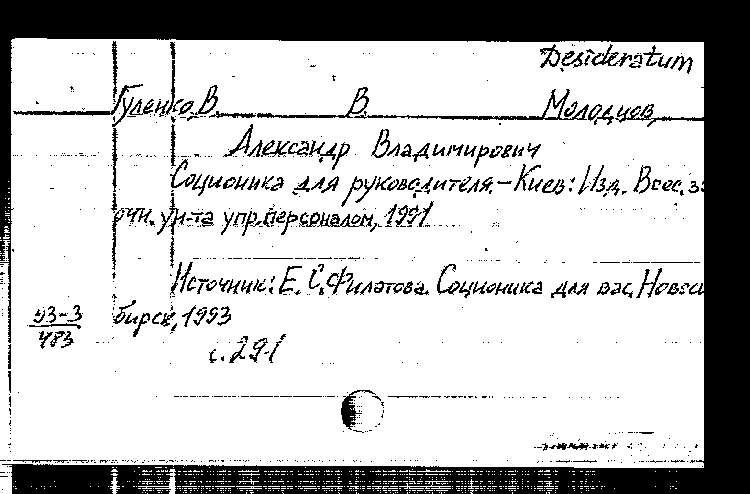 Desideratum
Гуленко, В. В. Молодцов,
Александр Владимирович
Соционика для руководителя. – Киев: Изд. Всес. за
очн. ун-та упр. персоналом, 1991
Источник: Е. С. Филатова. Соционика для вас, Новоси
бирск, 1993
93-3
483
с. 291